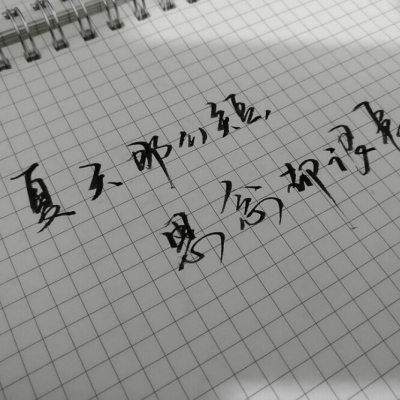 夏天那么短,
思念却很